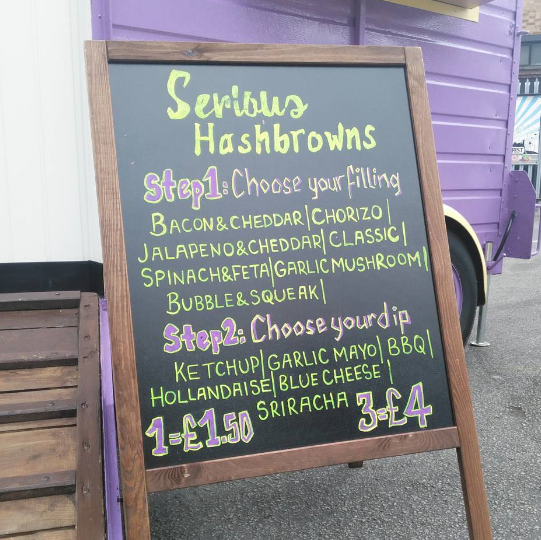 Serious
Hashbrowns
Step1: Choose your filling
BACON & CHEDDAR | CHORIZO |
JALAPENO & CHEDDAR | CLASSIC |
SPINACH & FETA | GARLIC MUSHROOM |
BUBBLE & SQUEAK |
Step2: Choose your dip
KETCHUP | GARLIC MAYO | BBQ |
HOLLANDAISE | BLUE CHEESE |
SRIRACHA
1=£1.50 3=£4